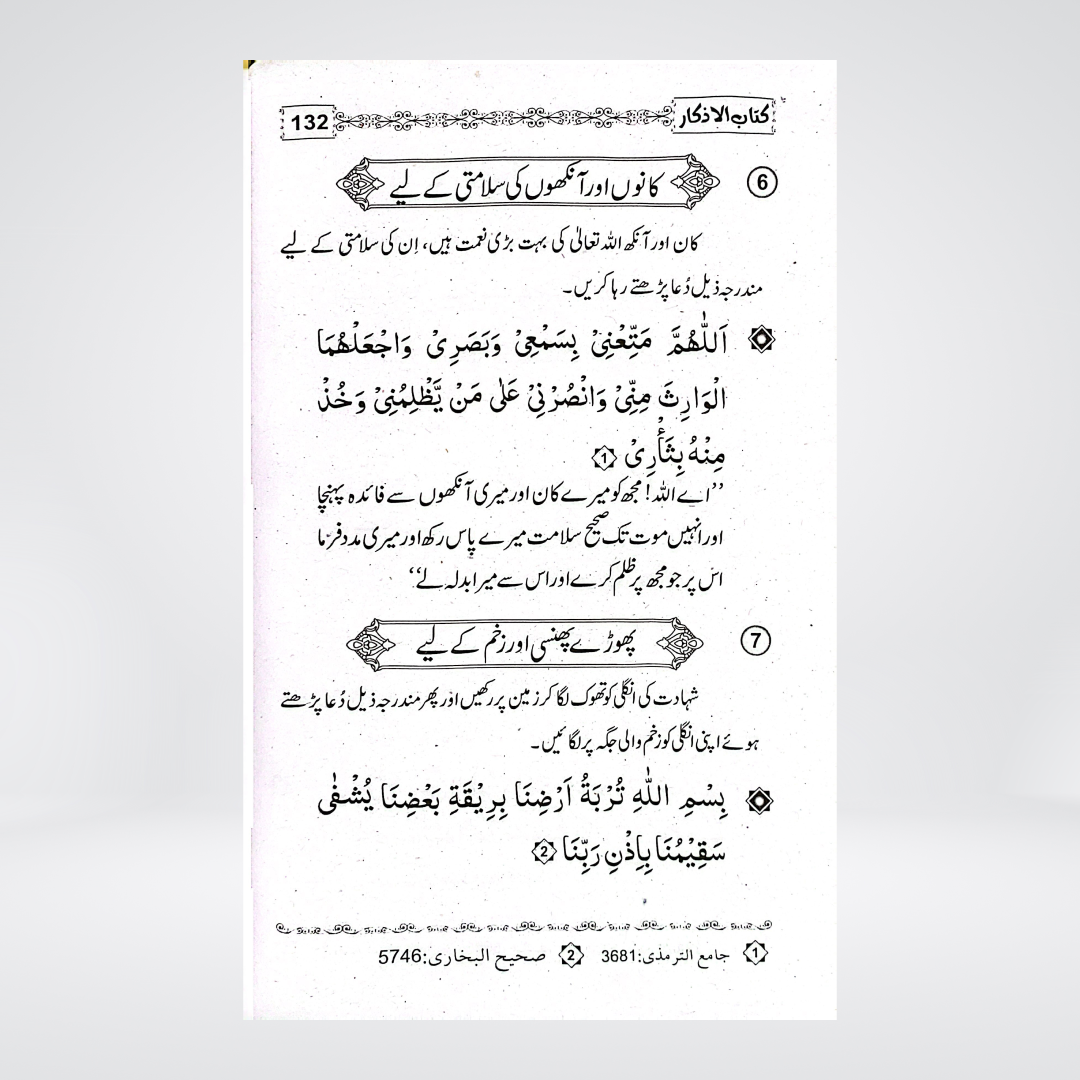 كتاب الاذكار 132
6 کانوں اور آنکھوں کی سلامتی کے لیے
کان اور آنکھ اللہ تعالیٰ کی بہت بڑی نعمت ہیں، اِن کی سلامتی کے لیے
مندرجہ ذیل دُعا پڑھتے رہا کریں۔
اَللّٰهُمَّ مَتِّعْنِیْ بِسَمْعِیْ وَبَصَرِیْ وَاجْعَلْهُمَا
الْوَارِثَ مِنِّیْ وَانْصُرْنِیْ عَلٰی مَنْ يَّظْلِمُنِیْ وَخُذْ
مِنْهُ بِثَأْرِیْ 1
’’اے اللہ! مجھ کو میرے کان اور میری آنکھوں سے فائدہ پہنچا
اور انہیں موت تک صحیح سلامت میرے پاس رکھ اور میری مدد فرما
اس پر جو مجھ پر ظلم کرے اور اس سے میرا بدلہ لے‘‘
7 پھوڑے پھنسی اور زخم کے لیے
شہادت کی انگلی کو تھوک لگا کر زمین پر رکھیں اور پھر مندرجہ ذیل دُعا پڑھتے
ہوئے اپنی انگلی کو زخم والی جگہ پر لگائیں۔
بِسْمِ اللّٰهِ تُرْبَةُ اَرْضِنَا بِرِيْقَةِ بَعْضِنَا يُشْفٰی
سَقِيْمُنَا بِاِذْنِ رَبِّنَا 2
1 جامع الترمذی:3681 2 صحیح البخاری:5746